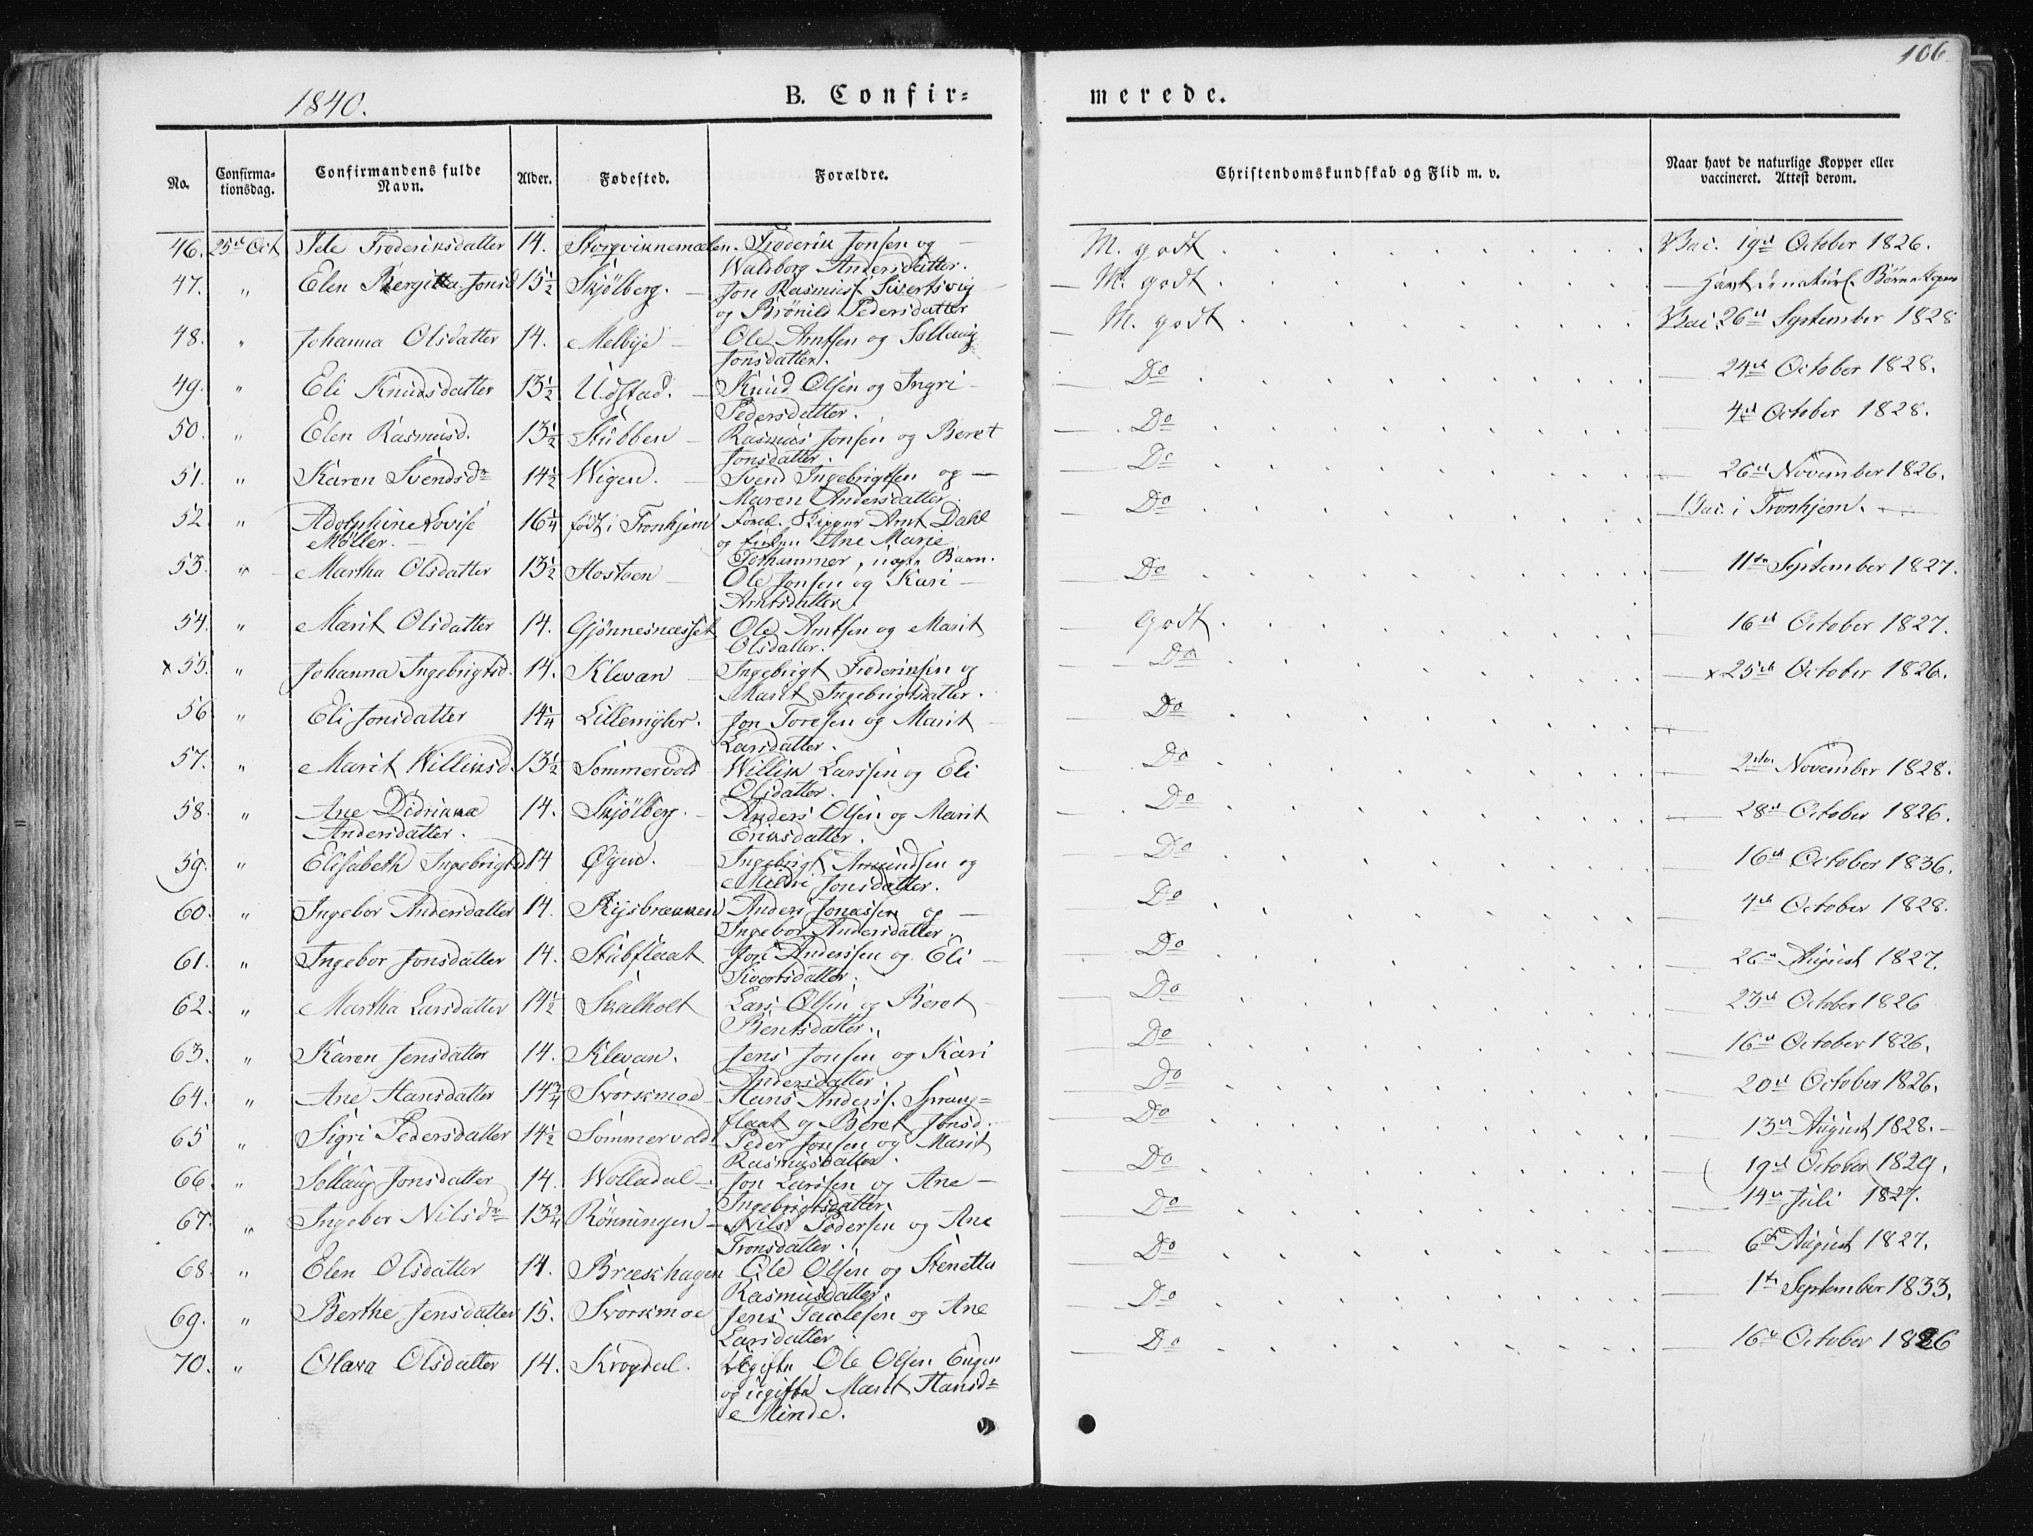 106
1840.
B. Confir=
merede.
No.
Confirma-
tionsdag.
Confirmandens fulde
Navn.
Alder.
Fødested.
Forældre.
Christendomskundskab og Flid m. v.
Naar havt de naturlige Kopper eller
vaccineret. Attest derom.
46. 25de Oct Frederiksdatter 14. Frederik Jonsen og M. godt Vac. 19de October 1826.
Andersdatter.
47. " Elen Bergitta Jonsd 15½ Skjölberg. Jon Rasmus. M. godt havt de naturl. Børnekoper
og Brönild Pedersdatter
48. " Johanna Olsdatter 14. Melbye Ole Arntsen og Sollaug M. godt Vac. 26de September 1828
Jonsdatter.
49. " Eli Knudsdatter 13½ Udstad. Knud Olsen og Ingri Do 24de October 1828.
Pedersdatter.
50. " Elen Rasmusd. 13½ Stubben Rasmus Jonsen og Beret Do 4de October 1828.
Jonsdatter.
51. " Karen Svendsdr 14½ Wigen. Svend Ingebrigtsen og Do 26de November 1826.
Maren Andersdatter.
52 " Adolphine Lovise 16¼ født i Tronhjem Arnt Dahl Do Vac. i Tronhjem.
Möller. og Ane Marie
Barn.
53. " Martha Olsdatter 13½ Hostoen Ole Jonsen og Kari Do 11te September 1827.
Arntsdatter.
54. " Marit Olsdatter 14. Gjönnesnæsset Ole Arntsen og Marit godt 16de October 1827.
Olsdatter.
x 55. " Johanna Ingebrigtsd. 14. Klevan Ingebrigt Frederiksen og Do x 25de October 1826.
Marit Ingebrigtsdatter.
56 " Eli Jonsdatter 14¼ Jon Toresen og Marit Do
Larsdatter.
57. " Marit Willimsd. 13½ Sommervold Willim Larssen og Eli Do 2den November 1828.
Olsdatter.
58. " Ane Didrikka 14. Skjölberg. Anders Olsen og Marit Do 28de October 1826.
Andersdatter. Eriksdatter.
59. " Elisabeth Ingebrigtsd 14 Öyen. Ingebrigt Amundsen og Do 16de October 1836.
Mildri Jonsdatter.
60. " Ingebor Andersdatter 14. Anders Jonassen og Do 4de October 1828.
Ingebor Andersdatter.
61. " Ingebor Jonsdatter 14. Stubflaat Jon Anderssen og Eli Do 26de August 1827.
Sivertsdatter.
62. " Martha Larsdatter 14½ Skalholt Lars Olsen og Beret Do 23de October 1826
Bentsdatter.
63. " Karen Jensdatter 14. Klevan. Jens Jonsen og Kari Do 16de October 1826.
Andersdatter.
64. " Ane Hansdatter 14¾ Svorskmoe Hans Anders. Do 20de October 1826.
og Beret Jonsd.
65 " Sigri Pedersdatter 14½ Sommervold Peder Jonsen og Marit Do 13de August 1828.
Rasmusdatter.
66. " Sollaug Jonsdatter 14. Wolladal Jon Larssen og Ane Do 19de October 1829.
Ingebrigtsdatter.
67. " Ingebor Nilsdr 13¾ Rönningen Nils Pedersen og Ane Do 14de Juli 1827.
Tronsdatter.
68. " Elen Olsdatter 14. Bræskhagen Ole Olsen og Stenetta Do 6te August 1827.
Rasmusdatter.
69. " Berthe Jensdatter 15. Svorskmoe Jens Tarlesen og Ane Do 1te September 1833.
Larsdatter
70. " Olava Olsdatter 14. Krogdal. Ugifte Ole Olsen Engen Do 16de October 1826
og ugifte Marit Hansdr
Minde.